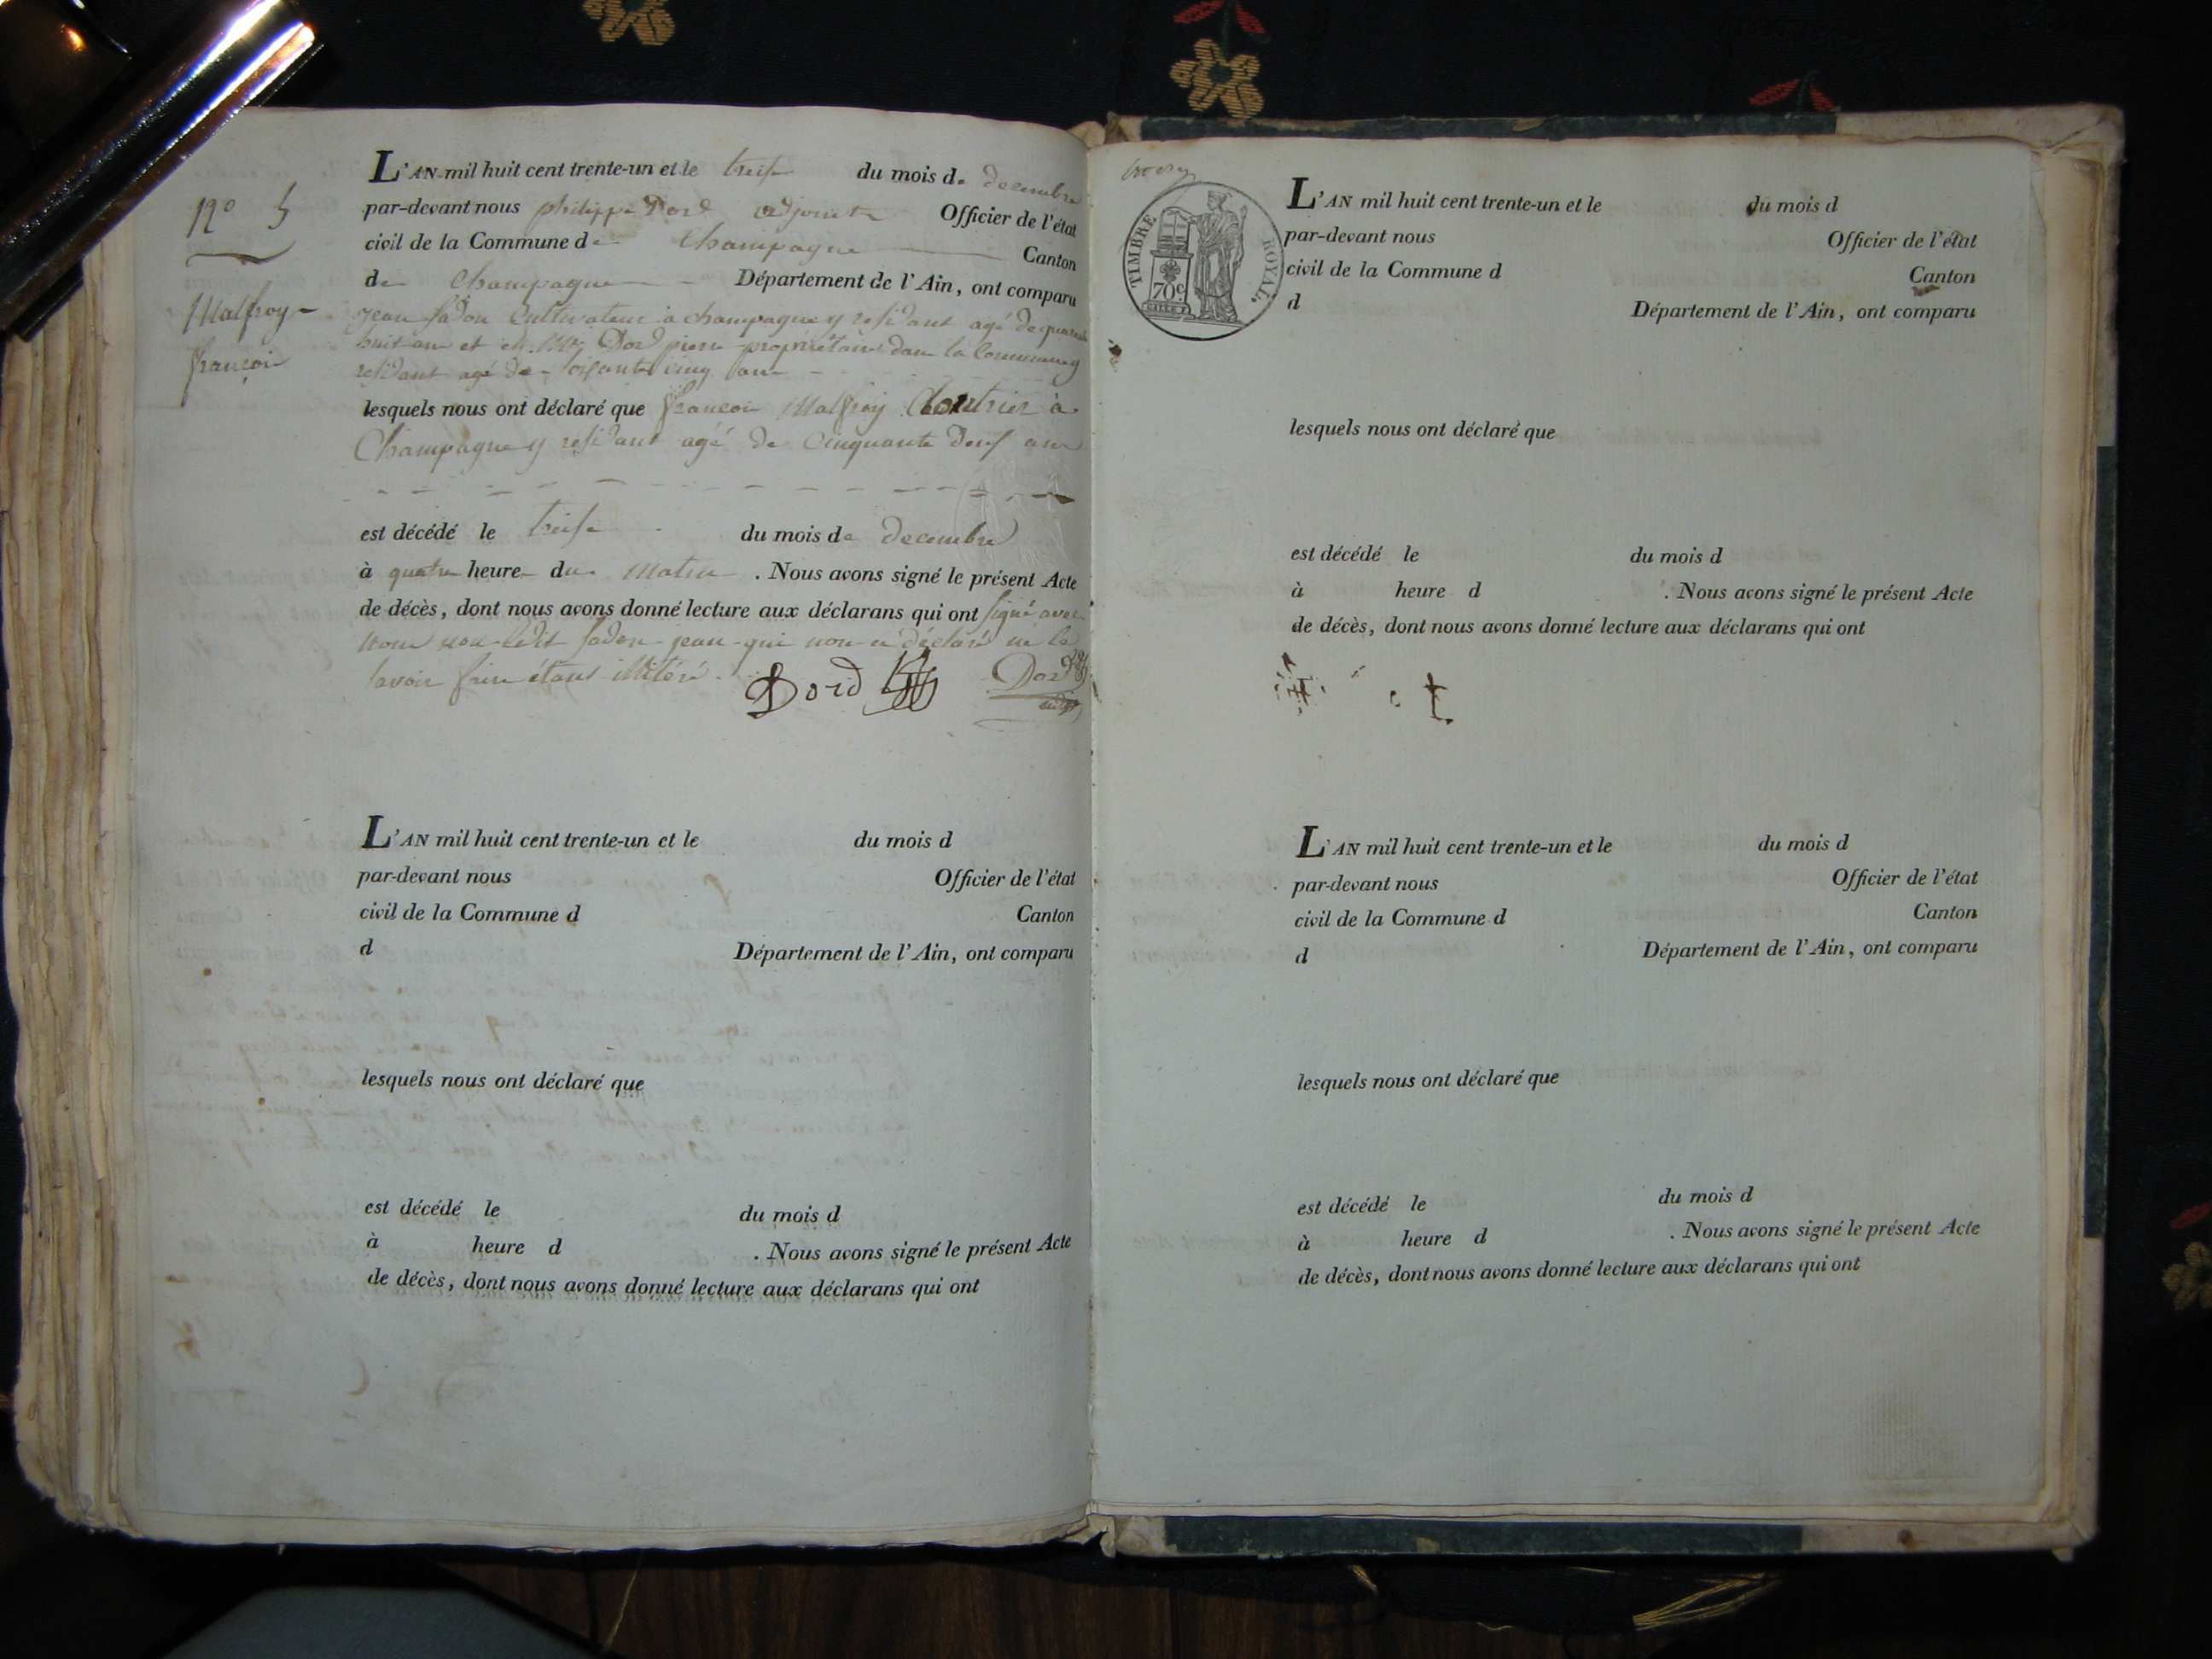 N° 5
Malfroy
françois
L'AN mil huit cent trente-un et le treise du mois de decembre
par-devant nous philippe Dord adjoint Officier de l'état
civil de la Commune de Champagne Canton
de Champagne Département de l'Ain, ont comparu
jean fadon Cultivateur à champagne y residant agé de quarante
huit ans et Dord pierre propriétaire dans la Commune y
residant agé de soisante cinq ans
lesquels nous ont déclaré que françois Malfroy à
Champagne y residant agé de Cinquante Deuf ans
est décédé le treise du mois de decembre
à quatre heure du Matin . Nous avons signé le présent Acte
de décès, dont nous avons donné lecture aux déclarans qui ont signé avec
nous non ledit fadon jean qui nous a déclaré ne le
savoir faire étant illitéré
Dord Dord
L'AN mil huit cent trente-un et le du mois d
par-devant nous Officier de l'état
civil de la Commune d Canton
d Département de l'Ain, ont comparu
lesquels nous ont déclaré que
est décédé le du mois d
à heure d . Nous avons signé le présent Acte
de décès, dont nous avons donné lecture aux déclarans qui ont
TIMBRE ROYAL
70c
L'AN mil huit cent trente-un et le du mois d
par-devant nous Officier de l'état
civil de la Commune d Canton
d Département de l'Ain, ont comparu
lesquels nous ont déclaré que
est décédé le du mois d
à heure d . Nous avons signé le présent Acte
de décès, dont nous avons donné lecture aux déclarans qui ont
L'AN mil huit cent trente-un et le du mois d
par-devant nous Officier de l'état
civil de la Commune d Canton
d Département de l'Ain, ont comparu
lesquels nous ont déclaré que
est décédé le du mois d
à heure d . Nous avons signé le présent Acte
de décès, dont nous avons donné lecture aux déclarans qui ont